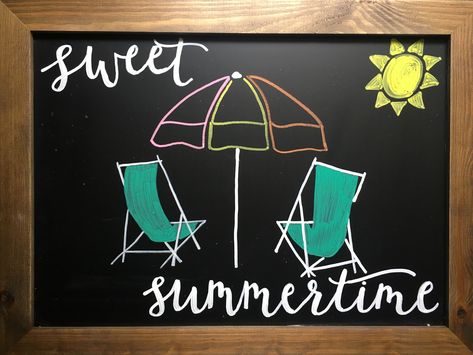 sweet
summertime